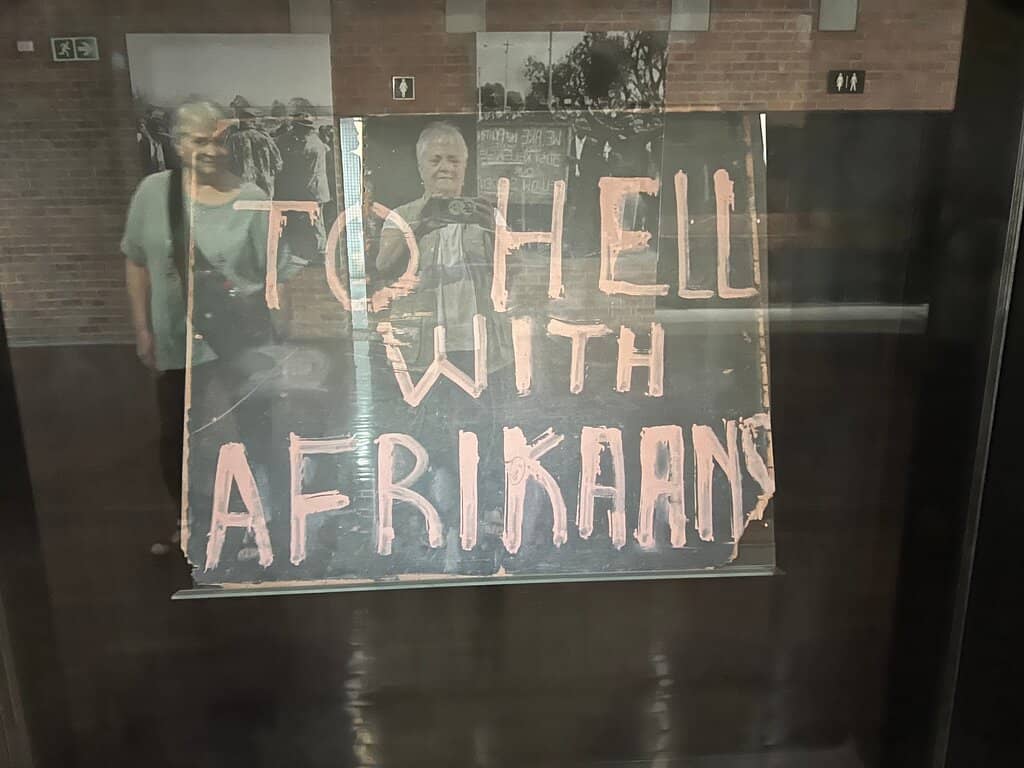 TO HELL
WITH
AFRIKAANS